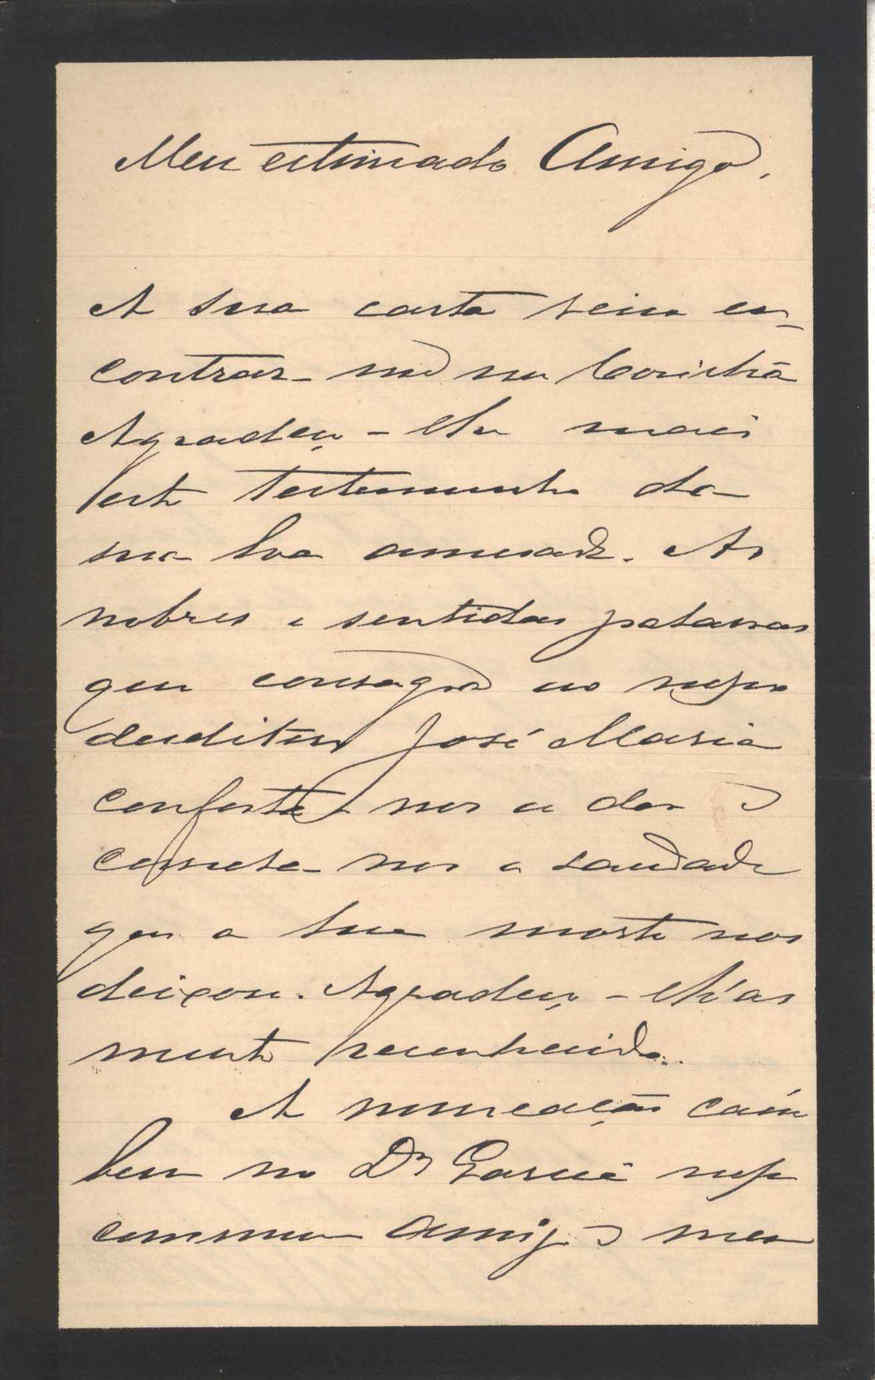 Meu estimado Amigo,
A sua carta veiu en-
contrar-me na Covilhã
Agradeço-lhe mais
este testemunho da
sua boa amisade. As
nobres e sentidas palavras
que consagra ao nosso
desditoso José Maria
conforta-nos a dor e
a saudade
que a sua morte nos
deixou. Agradeço-lh'as
muito reconhecido.
A nomeação cahiu
bem no Dr Garcia nosso
commum amigo e meu